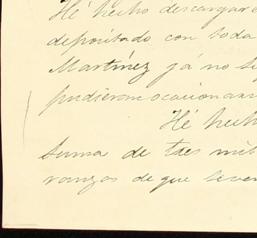 Hé hecho descargar
depositado con toda
Martínez yá no
pudieron ocacionar
Hé hech
suma de tres mil
ranzas de que